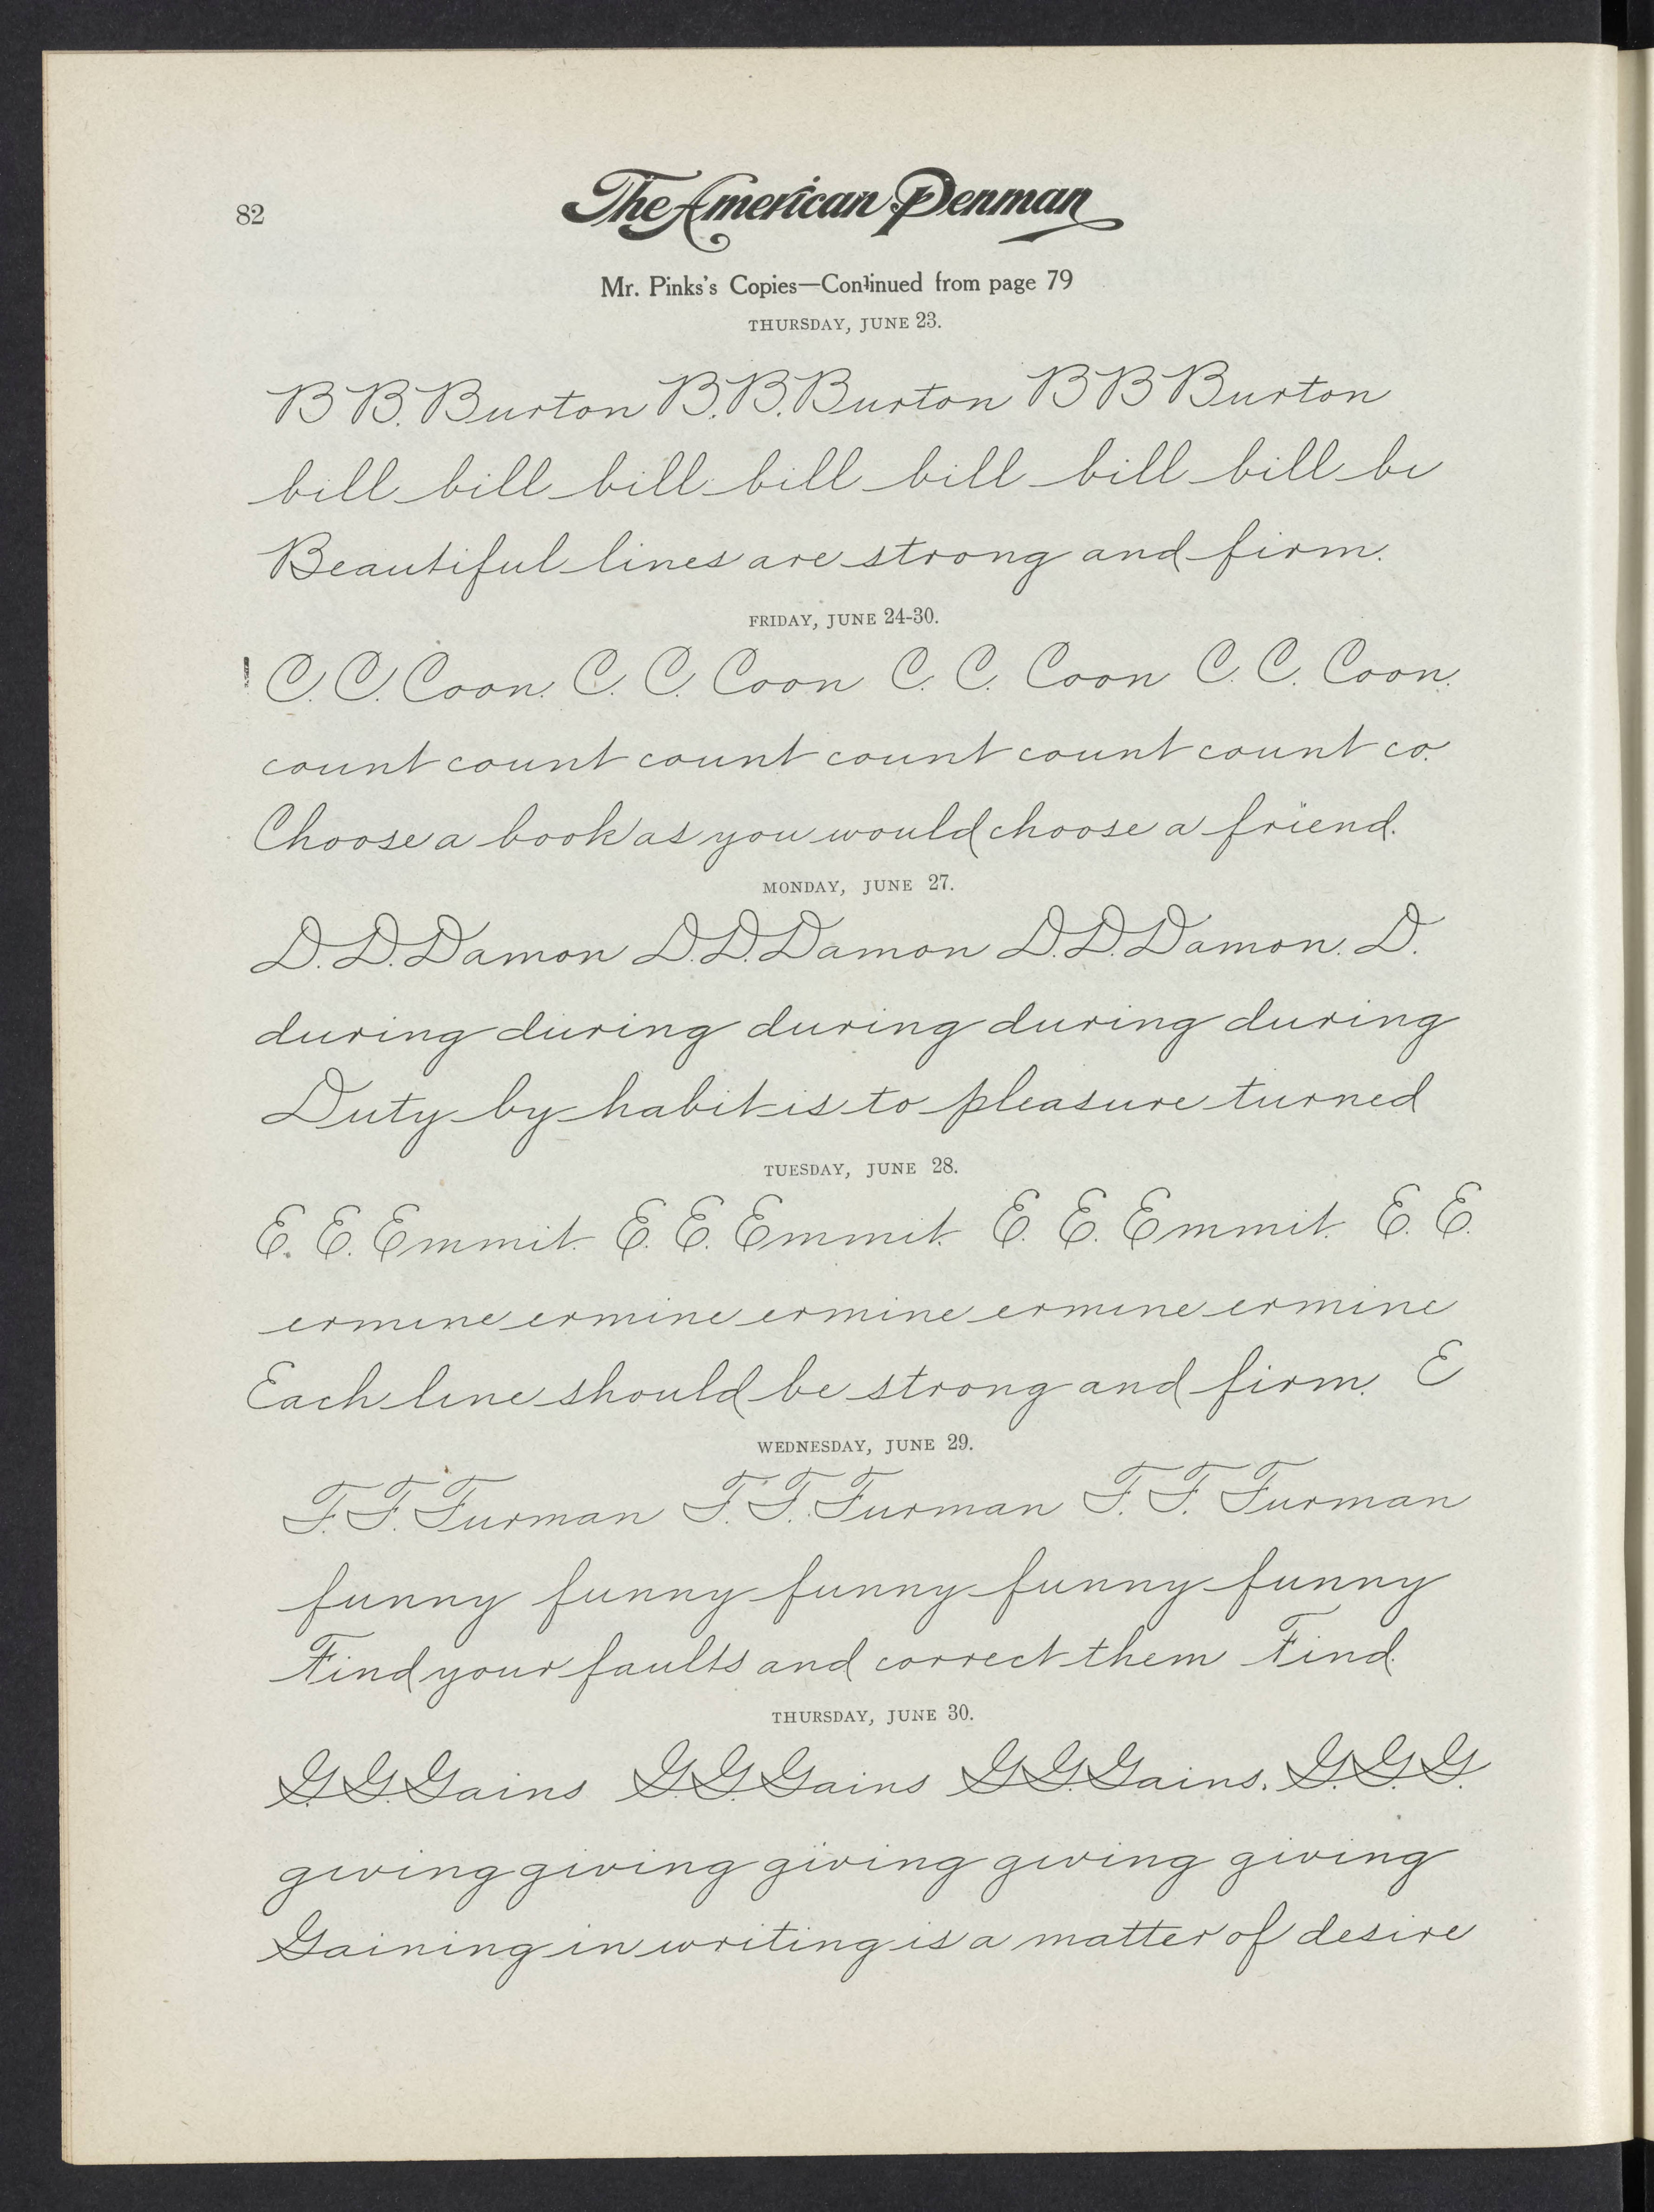 82
The American Penman
Mr. Pinks's Copies—Continued from page 79
THURSDAY, JUNE 23.
B B. Burton B. B. Burton B B Burton
bill bill bill bill bill bill bill bi
Beautiful lines are strong and firm.
FRIDAY, JUNE 24-30.
C. C. Coon. C. C. Coon C. C. Coon C. C. Coon.
count count count count count count co.
Choose a book as you would choose a friend.
MONDAY, JUNE 27.
D. D. Damon D. D. Damon D. D. Damon. D.
during during during during during
Duty by habit is to pleasure turned
TUESDAY, JUNE 28.
E. E. Emmit. E. E. Emmit. E. E. Emmit. E. E.
ermine ermine ermine ermine ermine
Each line should be strong and firm. E
WEDNESDAY, JUNE 29.
F. F. Furman F. F. Furman F. F. Furman
funny funny funny funny funny
Find your faults and correct them Find.
THURSDAY, JUNE 30.
G. G. Gains G. G. Gains G. G. Gains. G. G. G.
giving giving giving giving giving
Gaining in writing is a matter of desire